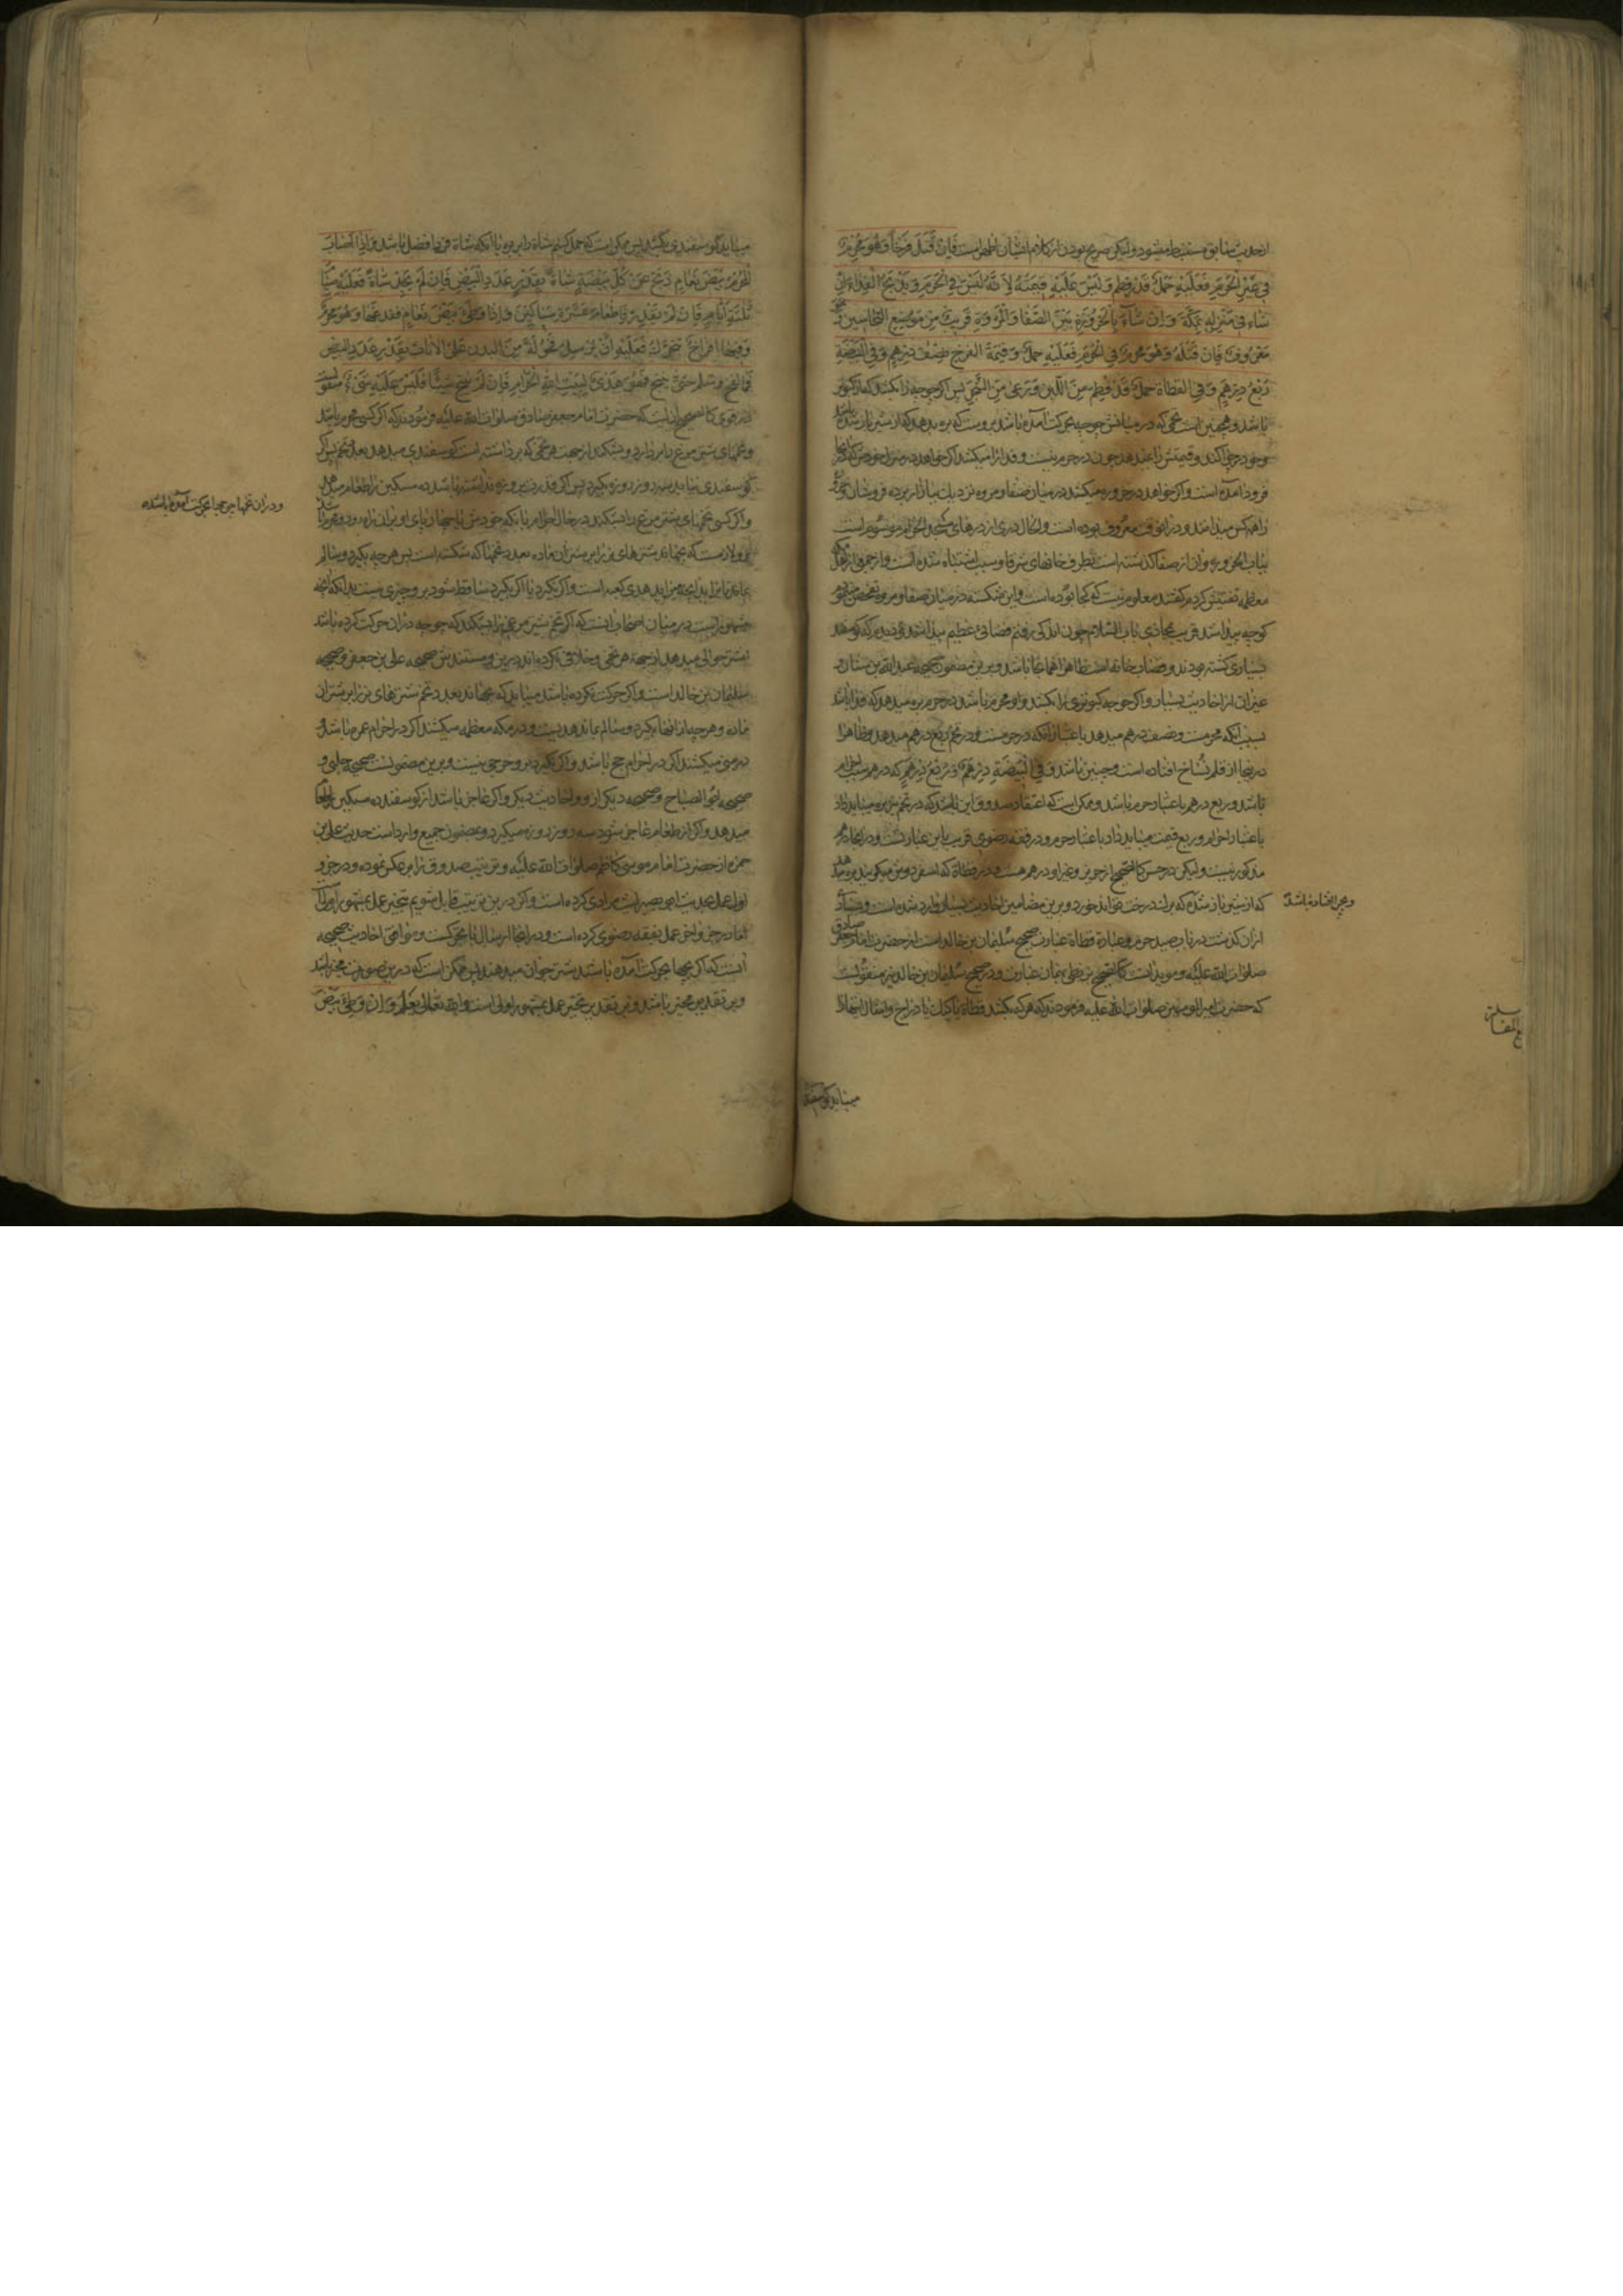 از حدیث سابق مستنبط میشود ولیکن صریح نبودن از کلام ایشان اظهر است فَاِنْ قَتَلَ فَرْخاً وَهُوَ مُحْرِمٌ
فِی غَیْرِ الْحَرَمِ فَعَلَیْهِ حَمَلٌ قَدْ فُطِمَ وَ لَیْسَ عَلَیْهِ قِیمَتُهُ لِاَنَّهُ لَیْسَ فِی الْحَرَمِ وَ یَذْبَحُ الْفِدَاءَ اِنْ
شَاءَ فِی مَنْزِلِهِ بِمَکَّةَ وَ اِنْ شَاءَ بِالْحَزْوَرَةِ بَیْنَ الصَّفَا وَ الْمَرْوَةِ قَرِیبٌ مِنْ مَوْضِعِ النَّخَّاسِینَ
مَعْرُوفٌ فَاِنْ قَتَلَهُ وَ هُوَ مُحْرِمٌ فِی الْحَرَمِ فَعَلَیْهِ حَمَلٌ وَ قِیمَةُ الْفَرْخِ نِصْفُ دِرْهَمٍ وَ فِی الْبَیْضَةِ
رُبُعُ دِرْهَمٍ وَ فِی الْقَطَاةِ حَمَلٌ قَدْ فُطِمَ مِنَ اللَّبَنِ وَ رَعَی مِنَ الشَّجَرِ پس اگر جوجه را بکشد که از کبوتر
باشد و همچنین است تخمی که در میانش جوجه بحرکت آمده باشد بروست که بره بدهد که از شیر باز شده باشد
و خود چرا کند و قیمتش را نمیدهد چون در حرم نیست و فدا را میکشد اگر خواهد در منزل خود که در آنجا
فرود آمده است و اگر خواهد در حزوره میکشد در میان صفا و مروه نزدیک ببازار برده فروشان
را همه کس میدانند و در آنوقت معروف بوده است و الحال دری از درهای مسجد الحرام موسوم است
بباب الحزوره و آن از صفا گذشته است بطرف خانهای شرفا و سبب اشتباه شده است و از جمعی از اهل مکه
معظمه تفتیش کردم گفتند معلوم نیست که کجا بوده است و این شکسته در میان صفا و مروه تفحص مینمودم
کوچه پیدا شد قریب بمحاذی باب السلام چون اندکی رفتم فضائی عظیم پیدا شد و دیدم که گوسفند
بسیاری کشته بودند و قصاب خانه است ظاهرا همانجا باشد و برین مضمونست صحیحه عبد الله بن سنان و
غیر آن از احادیث بسیار و اگر جوجه کبوتری را بکشد و او محرم باشد در حرم بره میدهد که فدا باشد
بسبب آنکه محرمست و نصف درهم میدهد باعتبار آنکه در حرمست و در تخم ربع درهم میدهد و ظاهرا
درینجا از قلم نساخ افتاده است و چنین باشد وَ فِی الْبَیْضَةِ دِرْهَمٌ وَ رُبُعُ دِرْهَمٍ که درهم بسبب احرام
باشد و ربع درهم باعتبار حرم باشد و ممکن است که اعتقاد صدوق این باشد که در تخم نیز بره میباید داد
باعتبار احرام و ربع قیمت میباید داد باعتبار حرم و در فقه رضوی قریب باین عبارتست و در آنجا درهم
مذکور نیست ولیکن در حسن کالصحیح از حریز و غیر او درهم هست و در قطاة که اسفرودش میگویند بره میدهد
که از شیر باز شده که برگ درخت تواند خورد و برین مضامین احادیث بسیار وارد شده است و بعضی
و چیزی افتاده باشد
از آن گذشت در باب صید حرم و عبارة قطاة عبارت صحیح سلیمان بن خالد است از حضرت امام جعفر صادق
صلوات الله علیه و مؤید آنست کالصحیح بزنطی بهمان عبارت و در صحیح سلیمان بن خالد نیز منقولست
که حضرت امیر المومنین صلوات الله علیه فرمودند که هر که بکشد قطاة یا کبک یا دراج و امثال اینها را
میباید گوسفند
میباید گوسفندی بکشد پس ممکن است که حمل کنیم شاة را بر بره یا آنکه شاة فرد افضل باشد وَ اِذَا اَصَابَ
الْمُحْرِمُ بَیْضَ نَعَامٍ ذَبَحَ عَنْ کُلِّ بَیْضَةٍ شَاةً بِقَدْرِ عَدَدِ الْبَیْضِ فَاِنْ لَمْ یَجِدْ شَاةً فَعَلَیْهِ صِیَامُ
ثَلَثَةِ اَیَّامٍ فَاِنْ لَمْ یَقْدِرْ فَاِطْعَامُ عَشَرَةِ مَسَاکِینَ وَ اِذَا وَطِئَ بَیْضَ نَعَامٍ فَفَدَغَهَا وَ هُوَ مُحْرِمٌ
وَ فِیهَا اَفْرَاخٌ تَتَحَرَّکُ فَعَلَیْهِ اَنْ یُرْسِلَ فُحُولَةً مِنَ الْبُدْنِ عَلَی الْاِنَاثِ بِقَدْرِ عَدَدِ الْبَیْضِ
فَمَا لَقِحَ وَ سَلِمَ حَتَّی یُنْتَجَ فَهُوَ هَدْیٌ لِبَیْتِ اللهِ الْحَرَامِ فَاِنْ لَمْ یُنْتَجْ شَیْئًا فَلَیْسَ عَلَیْهِ شَیْءٌ منقولست
در قوی کالصحیح که حضرت امام جعفر صادق صلوات الله علیه فرمودند که اگر کسی محرم باشد
و تخمهای شتر مرغ را بردارد و بشکند از جهت هر تخمی که برداشته است گوسفندی میدهد بعدد تخم پس اگر
گوسفندی نیابد سه روز روزه بگیرد پس اگر قدرت بر روزه نداشته باشد ده مسکین را طعام میدهد
و اگر کسی تخمهای شتر مرغ را بشکند در حال احرام بآنکه خودش یا چهارپای او بر آن راه رود
و در آن تخمها جوجها بحرکت آمده باشند
برو لازمست که بجهاند شترهای نر را بر شتران ماده بعدد تخمها که شکسته است پس هر چه بگیرد و سالم
بماند تا بزاید آنچه میزاید هدی کعبه است و اگر نگیرد یا اگر بگیرد ساقط شود برو چیزی نیست بدانکه آنچه
مشهور است در میان اصحاب آنست که اگر تخم شتر مرغی را بشکند که جوجه در آن حرکت کرده باشد
شتر جوانی میدهد از جهة هر تخمی و خلافی نکرده اند درین و مستندش صحیحه علی بن جعفر و صحیحه
سلیمان بن خالد است و اگر حرکت نکرده باشد میباید که بجهاند بعدد تخم شترهای نر را بر شتران
ماده و هر چه از آنها بگیرد و سالم بماند هدیست و در مکه معظمه میکشند اگر در احرام عمره باشد و
در منی میکشند اگر در احرام حج باشد و اگر نگیرد برو حرجی نیست و برین مضمونست صحیحه حلبی و
صحیحه ابو الصباح و صحیحه دیگر از او و احادیث دیگر و اگر عاجز باشد از گوسفند ده مسکین را طعام
میدهد و اگر از طعام عاجز شود سه روز روزه میگیرد و بمضمون جمیع وارد است حدیث علی بن
حمزه از حضرت امام موسی کاظم صلوات الله علیه و ترتیب صدوق را بر عکس نموده و در جزو
اول عمل بحدیث ابو بصیر است
اما در جزو آخر عمل بفقه رضوی کرده است و در آنجا ارسال با تحرکست و موافق احادیث صحیحه
آنست که اگر بچها بحرکت آمده باشند شتر جوان میدهند پس ممکن است که درین صورت مخیر باشد
و بر تقدیر مخیر باشد و بر تقدیر تخییر عمل بمشهور اولی است و الله تعالی یعلم وَ اِنْ وَطِئَ بَیْضَ